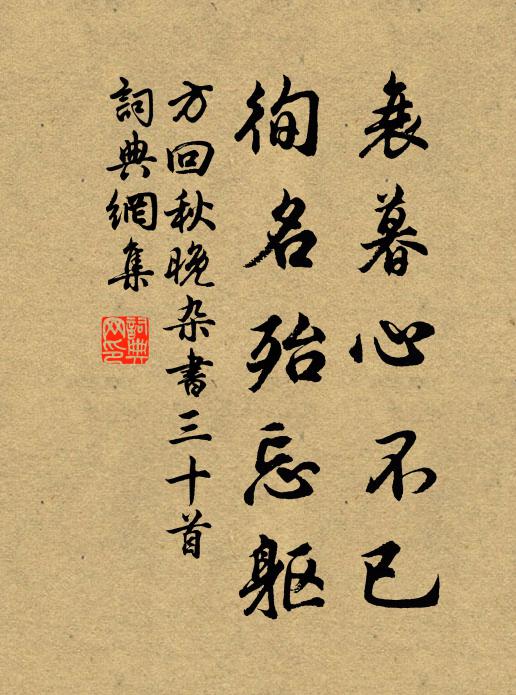 衰暮心不已
徇名殆忘躯
方回秋晚杂書三十首
詞典網集
詞典网印